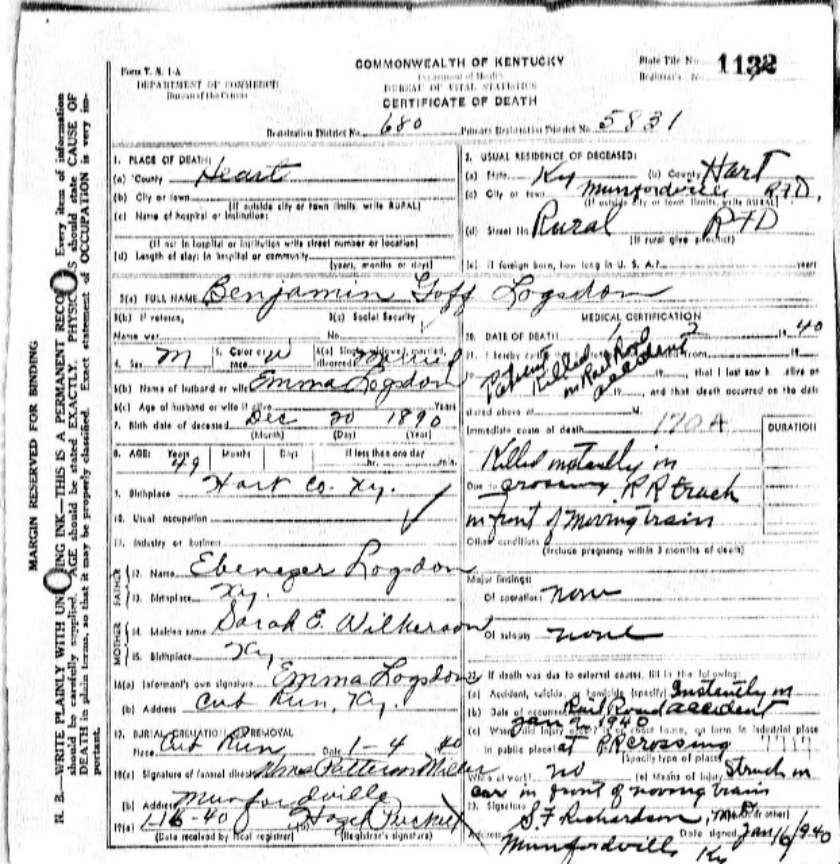 MARGIN RESERVED FOR BINDING
N. B.—WRITE PLAINLY WITH UN ING INK—THIS IS A PERMANENT RECO Every item of information
should be carefully supplied. AGE should be stated EXACTLY. PHYSIC S should state CAUSE OF
DEATH in plain terms, so that it may be properly classified. Exact statement of OCCUPATION is very im-
portant.
Form V. S. 1-A
DEPARTMENT OF COMMERCE
Bureau of the Census
COMMONWEALTH OF KENTUCKY
Department of Health
BUREAU OF VITAL STATISTICS
CERTIFICATE OF DEATH
State File No. 1132
Registrar's No.
Registration District No. 680 Primary Registration District No. 5831
1. PLACE OF DEATH:
(a) County Heart
(b) City or town
(If outside city or town limits, write RURAL)
(c) Name of hospital or institution:
(If not in hospital or institution write street number or location)
(d) Length of stay: in hospital or community
(years, months or days)
2. USUAL RESIDENCE OF DECEASED:
(a) State Ky (b) County Hart
(c) City or town Munfordville R.F.D.
(If outside city or town limits, write RURAL)
(d) Street No. Rural RFD
(If rural give precinct)
(e) If foreign born, how long in U. S. A.? years
3(a) FULL NAME Benjamin Goff Logsdon
3(b) If veteran,
Name war
3(c) Social Security
No.
4. Sex M 5. Color or W 6(a) Single, widowed, married,
divorced
6(b) Name of husband or wife Emma Logsdon
6(c) Age of husband or wife if alive Years
7. Birth date of deceased Dec 20 1890
(Month) (Day) (Year)
8. AGE: Years Months Days If less than one day
49 hr. min.
9. Birthplace Hart Co. Ky.
10. Usual occupation
11. Industry or business
FATHER
12. Name Ebenezer Logsdon
13. Birthplace Ky.
MOTHER
14. Maiden name Sarah E. Wilkerson
15. Birthplace Ky
16(a) Informant's own signature Emma Logsdon
(b) Address Cub Run, Ky.
17. BURIAL CREMATION REMOVAL
Place Cub Run Date 1-4 40
18(a) Signature of funeral director
(b) Address Munfordville
19(a) 1-16-40 (b) Hazel Puckett
(Date received by local registrar) (Registrar's signature)
MEDICAL CERTIFICATION
20. DATE OF DEATH 1 2 1940
21. I hereby certify from 19
Patient Killed
in Rail Rod
accident
to 19 , that I last saw h alive on
19 , and that death occurred on the date
stated above at M.
Immediate cause of death 170A
DURATION
Killed instantly in
Due to crossing RR track
in front of moving train
Other conditions
(Include pregnancy within 3 months of death)
Major findings:
Of operation none
Of autopsy none
22. If death was due to external causes, fill in the following:
(a) Accident, suicide, or homicide (specify) Instantly in
(b) Date of occurrence Rail Road accident
Jan 2, 1940
(c) Where did injury occur? in or about home, on farm in industrial place
in public place? at RR crossing
(Specify type of place)
While at work? no (e) Means of injury Struck in
car in front of moving train
23. Signature S F Richardson, M.D. (or other)
Address Munfordville Ky Date signed Jan 16/1940